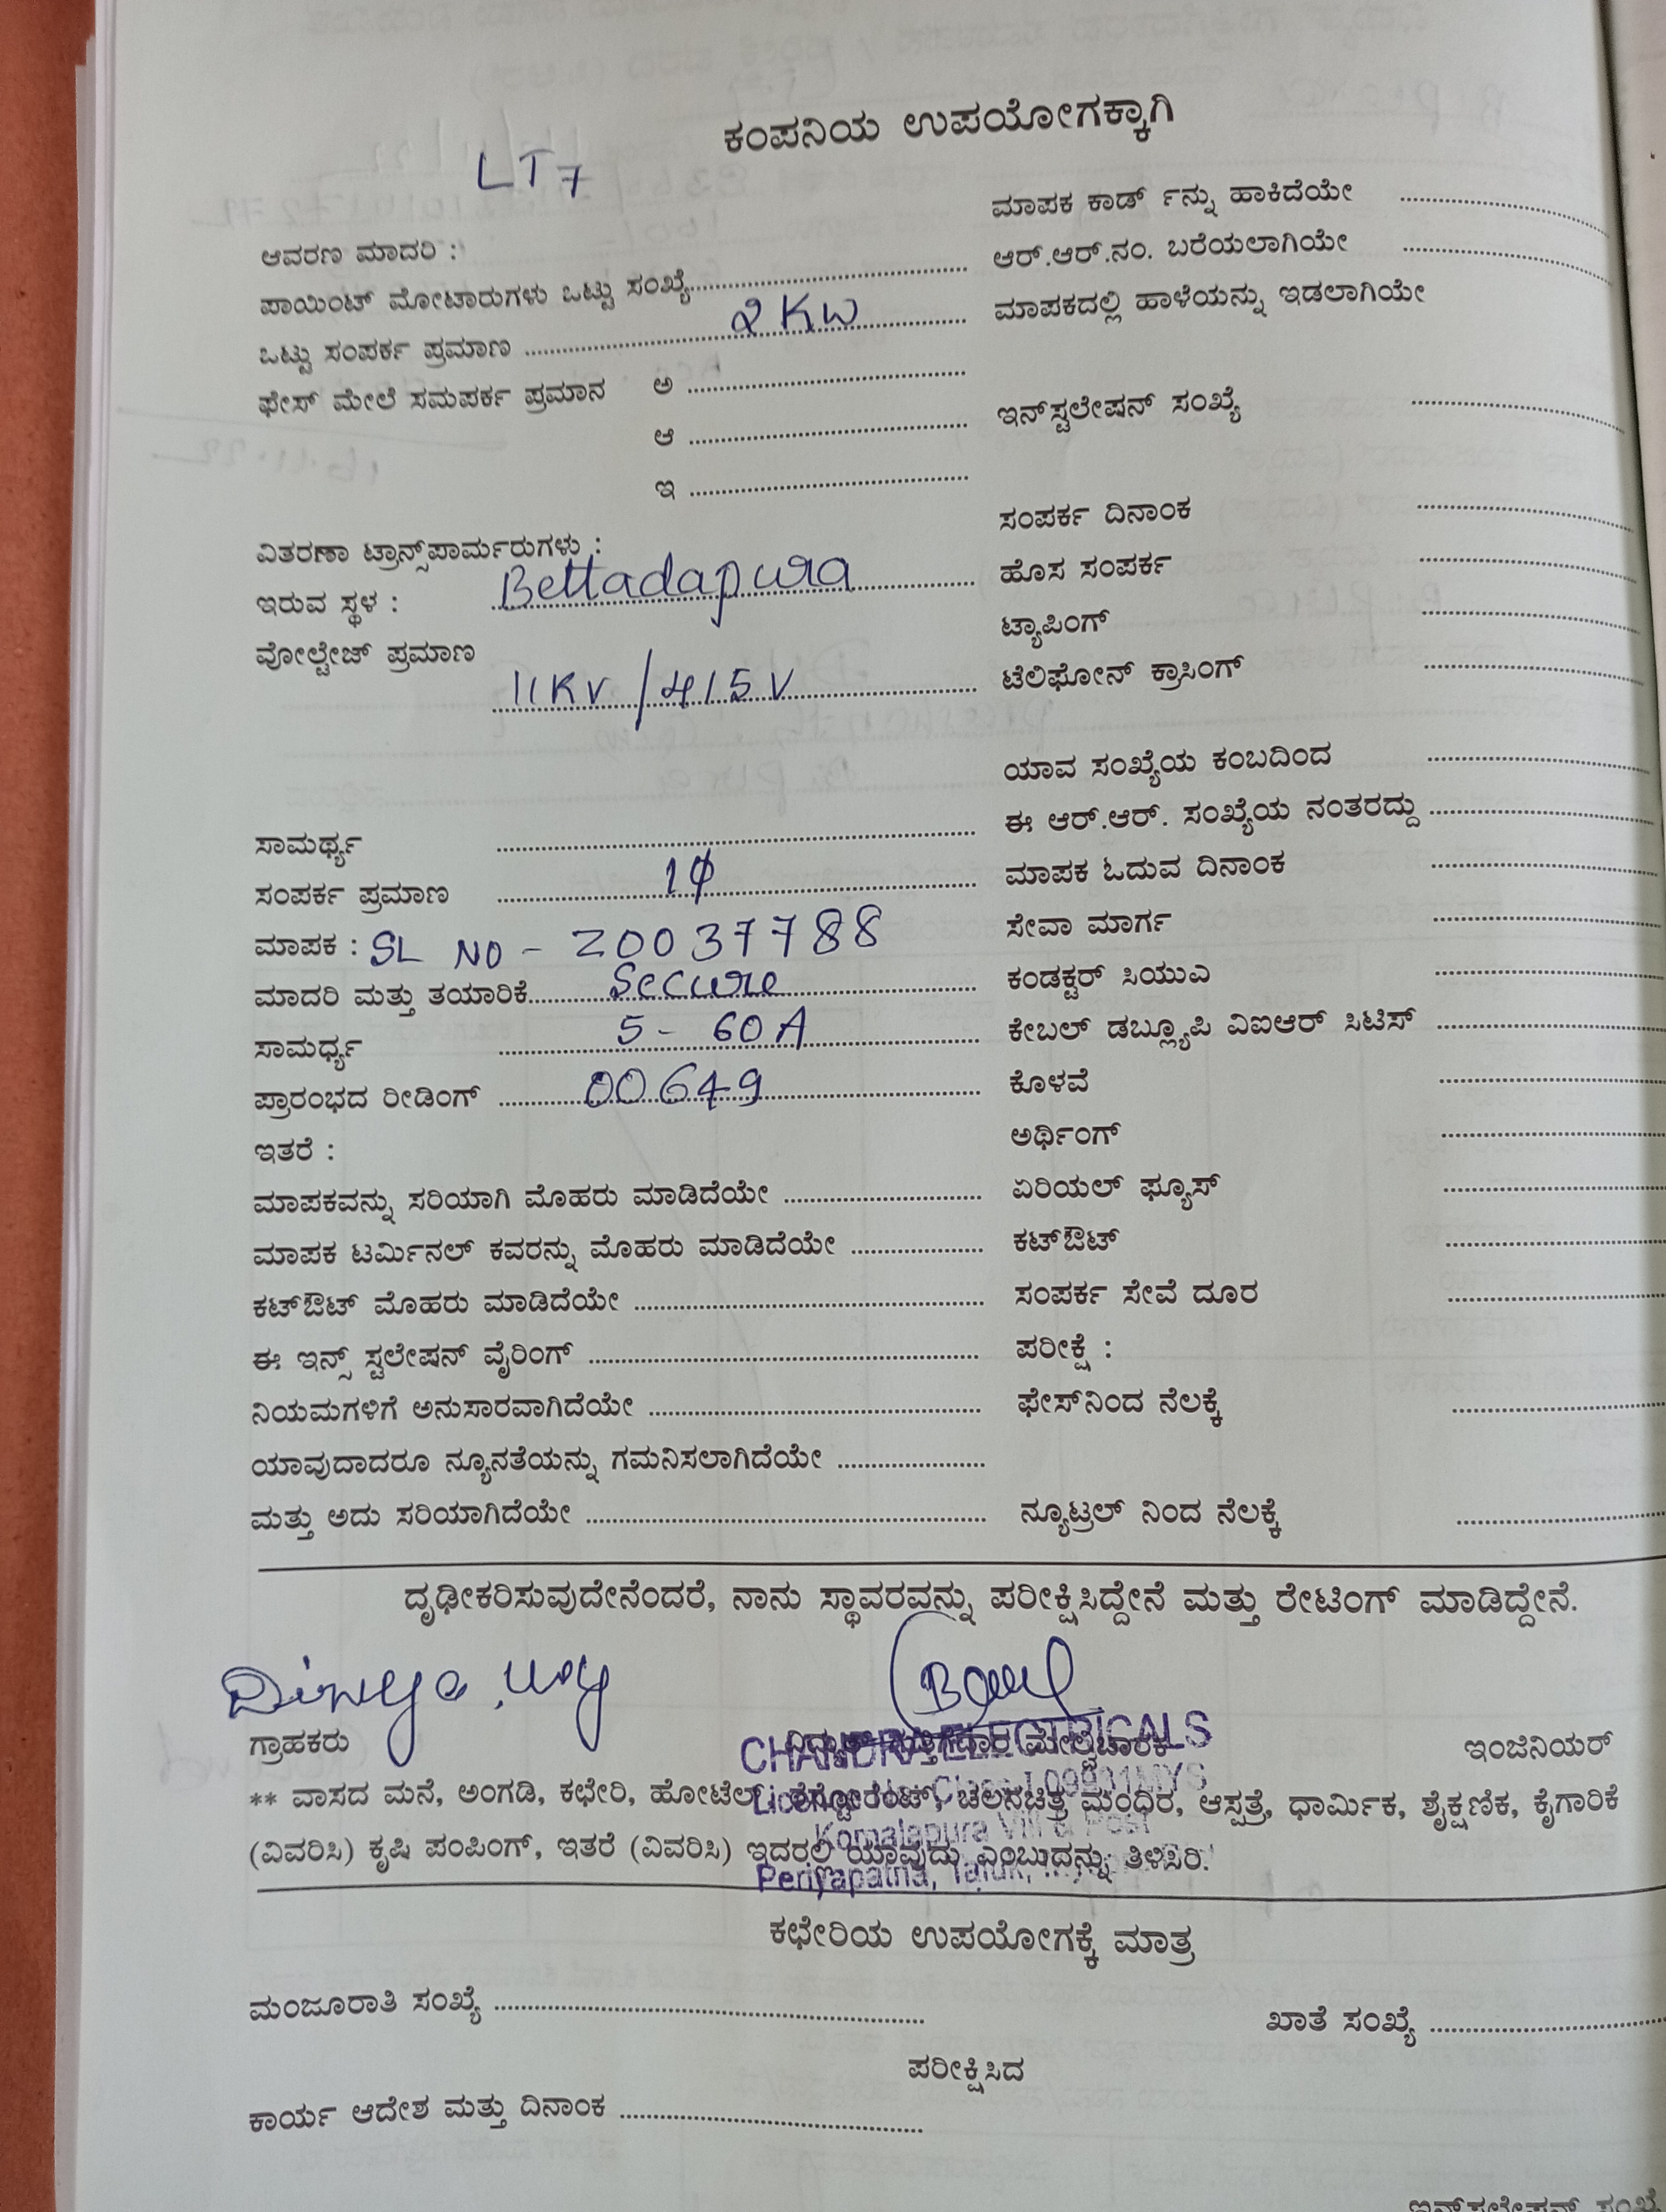 ಕಂಪನಿಯ ಉಪಯೋಗಕ್ಕಾಗಿ
LT7
ಆವರಣ ಮಾದರಿ :
ಪಾಯಿಂಟ್ ಮೋಟಾರುಗಳು ಒಟ್ಟು ಸಂಖ್ಯೆ
ಒಟ್ಟು ಸಂಪರ್ಕ ಪ್ರಮಾಣ 2 KW
ಫೇಸ್ ಮೇಲೆ ಸಮಪರ್ಕ ಪ್ರಮಾನ ಅ
ಆ
ಇ
ವಿತರಣಾ ಟ್ರಾನ್ಸ್‌ಪಾರ್ಮರುಗಳು :
ಇರುವ ಸ್ಥಳ : Bettadapura
ವೋಲ್ಟೇಜ್ ಪ್ರಮಾಣ
11KV/415V
ಸಾಮರ್ಥ್ಯ
ಸಂಪರ್ಕ ಪ್ರಮಾಣ 1φ
ಮಾಪಕ : SL NO - 20037788
ಮಾದರಿ ಮತ್ತು ತಯಾರಿಕೆ Secure
ಸಾಮರ್ಧ್ಯ 5 - 60A
ಪ್ರಾರಂಭದ ರೀಡಿಂಗ್ 00649
ಇತರೆ :
ಮಾಪಕವನ್ನು ಸರಿಯಾಗಿ ಮೊಹರು ಮಾಡಿದೆಯೇ
ಮಾಪಕ ಟರ್ಮಿನಲ್ ಕವರನ್ನು ಮೊಹರು ಮಾಡಿದೆಯೇ
ಕಟ್‌ಔಟ್ ಮೊಹರು ಮಾಡಿದೆಯೇ
ಈ ಇನ್ಸ್ ಸ್ಟಲೇಷನ್ ವೈರಿಂಗ್
ನಿಯಮಗಳಿಗೆ ಅನುಸಾರವಾಗಿದೆಯೇ
ಯಾವುದಾದರೂ ನ್ಯೂನತೆಯನ್ನು ಗಮನಿಸಲಾಗಿದೆಯೇ
ಮತ್ತು ಅದು ಸರಿಯಾಗಿದೆಯೇ
ಮಾಪಕ ಕಾರ್ಡ್ ನ್ನು ಹಾಕಿದೆಯೇ
ಆರ್.ಆರ್.ನಂ. ಬರೆಯಲಾಗಿಯೇ
ಮಾಪಕದಲ್ಲಿ ಹಾಳೆಯನ್ನು ಇಡಲಾಗಿಯೇ
ಇನ್‌ಸ್ಟಲೇಷನ್ ಸಂಖ್ಯೆ
ಸಂಪರ್ಕ ದಿನಾಂಕ
ಹೊಸ ಸಂಪರ್ಕ
ಟ್ಯಾಪಿಂಗ್
ಟೆಲಿಫೋನ್ ಕ್ರಾಸಿಂಗ್
ಯಾವ ಸಂಖ್ಯೆಯ ಕಂಬದಿಂದ
ಈ ಆರ್.ಆರ್. ಸಂಖ್ಯೆಯ ನಂತರದ್ದು
ಮಾಪಕ ಓದುವ ದಿನಾಂಕ
ಸೇವಾ ಮಾರ್ಗ
ಕಂಡಕ್ಟರ್ ಸಿಯುಎ
ಕೇಬಲ್ ಡಬ್ಲ್ಯೂಪಿ ವಿಐಆರ್ ಸಿಟಿಸ್
ಕೊಳವೆ
ಅರ್ಥಿಂಗ್
ಏರಿಯಲ್ ಫ್ಯೂಸ್
ಕಟ್‌ಔಟ್
ಸಂಪರ್ಕ ಸೇವೆ ದೂರ
ಪರೀಕ್ಷೆ :
ಫೇಸ್‌ನಿಂದ ನೆಲಕ್ಕೆ
ನ್ಯೂಟ್ರಲ್ ನಿಂದ ನೆಲಕ್ಕೆ
ದೃಢೀಕರಿಸುವುದೇನೆಂದರೆ, ನಾನು ಸ್ಥಾವರವನ್ನು ಪರೀಕ್ಷಿಸಿದ್ದೇನೆ ಮತ್ತು ರೇಟಿಂಗ್ ಮಾಡಿದ್ದೇನೆ.
ಗ್ರಾಹಕರು ವಿದ್ಯುತ್ ಗುತ್ತಿಗೆದಾರ ಮೇಲ್ವಿಚಾರಕ ಇಂಜಿನಿಯರ್
CHANDRA ELECTRICALS
** ವಾಸದ ಮನೆ, ಅಂಗಡಿ, ಕಛೇರಿ, ಹೋಟೆಲ್, ರೆಸ್ಟೋರೆಂಟ್, ಚಲನಚಿತ್ರ ಮಂಧಿರ, ಆಸ್ಪತ್ರೆ, ಧಾರ್ಮಿಕ, ಶೈಕ್ಷಣಿಕ, ಕೈಗಾರಿಕೆ
Komalapura Vill & Post
(ವಿವರಿಸಿ) ಕೃಷಿ ಪಂಪಿಂಗ್, ಇತರೆ (ವಿವರಿಸಿ) ಇದರಲ್ಲಿ ಯಾವುದು ಎಂಬುದನ್ನು ತಿಳಿಸಿರಿ.
Periyapatna, Taluk,
ಕಛೇರಿಯ ಉಪಯೋಗಕ್ಕೆ ಮಾತ್ರ
ಮಂಜೂರಾತಿ ಸಂಖ್ಯೆ ಖಾತೆ ಸಂಖ್ಯೆ
ಪರೀಕ್ಷಿಸಿದ
ಕಾರ್ಯ ಆದೇಶ ಮತ್ತು ದಿನಾಂಕ